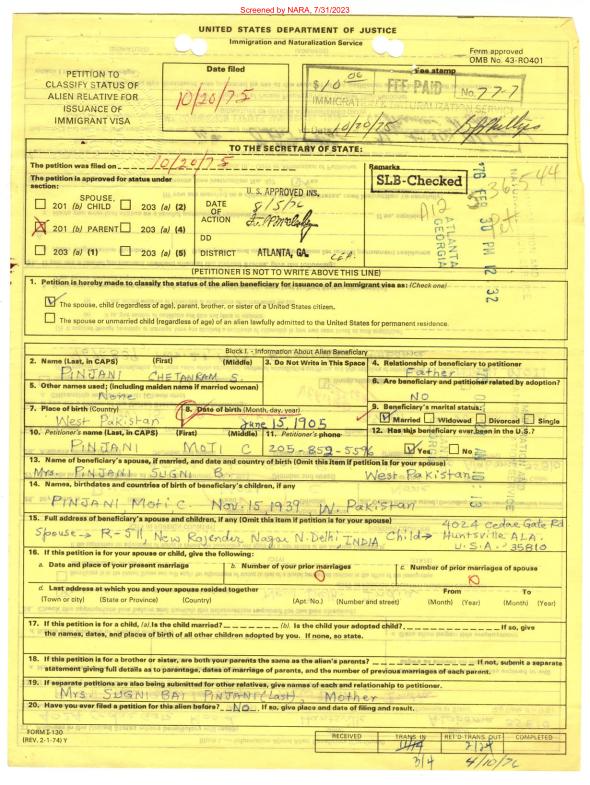 Screened by NARA, 7/31/2023
UNITED STATES DEPARTMENT OF JUSTICE
Immigration and Naturalization Service
Form approved
OMB No. 43-RO401
PETITION TO
CLASSIFY STATUS OF
ALIEN RELATIVE FOR
ISSUANCE OF
IMMIGRANT VISA
Date filed
10/20/75
Fee stamp
$10 00 FEE PAID No. 77-7
IMMIGRATION & NATURALIZATION SERVICE
10/20/75
TO THE SECRETARY OF STATE:
The petition was filed on 10/20/75
The petition is approved for status under
section:
SPOUSE,
201 (b) CHILD 203 (a) (2)
201 (b) PARENT 203 (a) (4)
203 (a) (1) 203 (a) (5)
U. S. APPROVED INS.
DATE
OF
ACTION
DD
DISTRICT ATLANTA, GA.
Remarks
SLB-Checked
A12
ATLANTA
GEORGIA
'76 FEB 30 PM 12 32
(PETITIONER IS NOT TO WRITE ABOVE THIS LINE)
1. Petition is hereby made to classify the status of the alien beneficiary for issuance of an immigrant visa as: (Check one)
The spouse, child (regardless of age), parent, brother, or sister of a United States citizen.
The spouse or unmarried child (regardless of age) of an alien lawfully admitted to the United States for permanent residence.
Block I. - Information About Alien Beneficiary
2. Name (Last, in CAPS) (First) (Middle)
PINJANI CHETANRAM S.
3. Do Not Write in This Space
4. Relationship of beneficiary to petitioner
Father
5. Other names used; (including maiden name if married woman)
None
6. Are beneficiary and petitioner related by adoption?
NO
7. Place of birth (Country)
West Pakistan
8. Date of birth (Month, day, year)
June 15, 1905
9. Beneficiary's marital status:
Married Widowed Divorced Single
10. Petitioner's name (Last, in CAPS) (First) (Middle)
PINJANI MOTI C
11. Petitioner's phone
205-852-5596
12. Has this beneficiary ever been in the U.S.?
Yes No
13. Name of beneficiary's spouse, if married, and date and country of birth (Omit this item if petition is for your spouse)
Mrs. PINJANI SUGNI B. West Pakistan
14. Names, birthdates and countries of birth of beneficiary's children, if any
PINJANI, Moti C. Nov. 15, 1939 W. Pakistan
15. Full address of beneficiary's spouse and children, if any (Omit this item if petition is for your spouse)
Spouse → R-511, New Rajender Nagar N. Delhi, INDIA Child → 4024 Cedar Gate Rd
Huntsville ALA.
U.S.A. 35810
16. If this petition is for your spouse or child, give the following:
a. Date and place of your present marriage
b. Number of your prior marriages
0
c. Number of prior marriages of spouse
0
d. Last address at which you and your spouse resided together From To
(Town or city) (State or Province) (Country) (Apt. No.) (Number and street) (Month) (Year) (Month) (Year)
17. If this petition is for a child, (a). Is the child married? (b). Is the child your adopted child? If so, give
the names, dates, and places of birth of all other children adopted by you. If none, so state.
18. If this petition is for a brother or sister, are both your parents the same as the alien's parents? If not, submit a separate
statement giving full details as to parentage, dates of marriage of parents, and the number of previous marriages of each parent.
19. If separate petitions are also being submitted for other relatives, give names of each and relationship to petitioner.
Mrs. SUGNI BAI PINJANI (Last), Mother
20. Have you ever filed a petition for this alien before? NO If so, give place and date of filing and result.
FORM I-130
(REV. 2-1-74) Y
RECEIVED TRANS. IN RET'D-TRANS. OUT COMPLETED
2/24
3/4 4/10/76